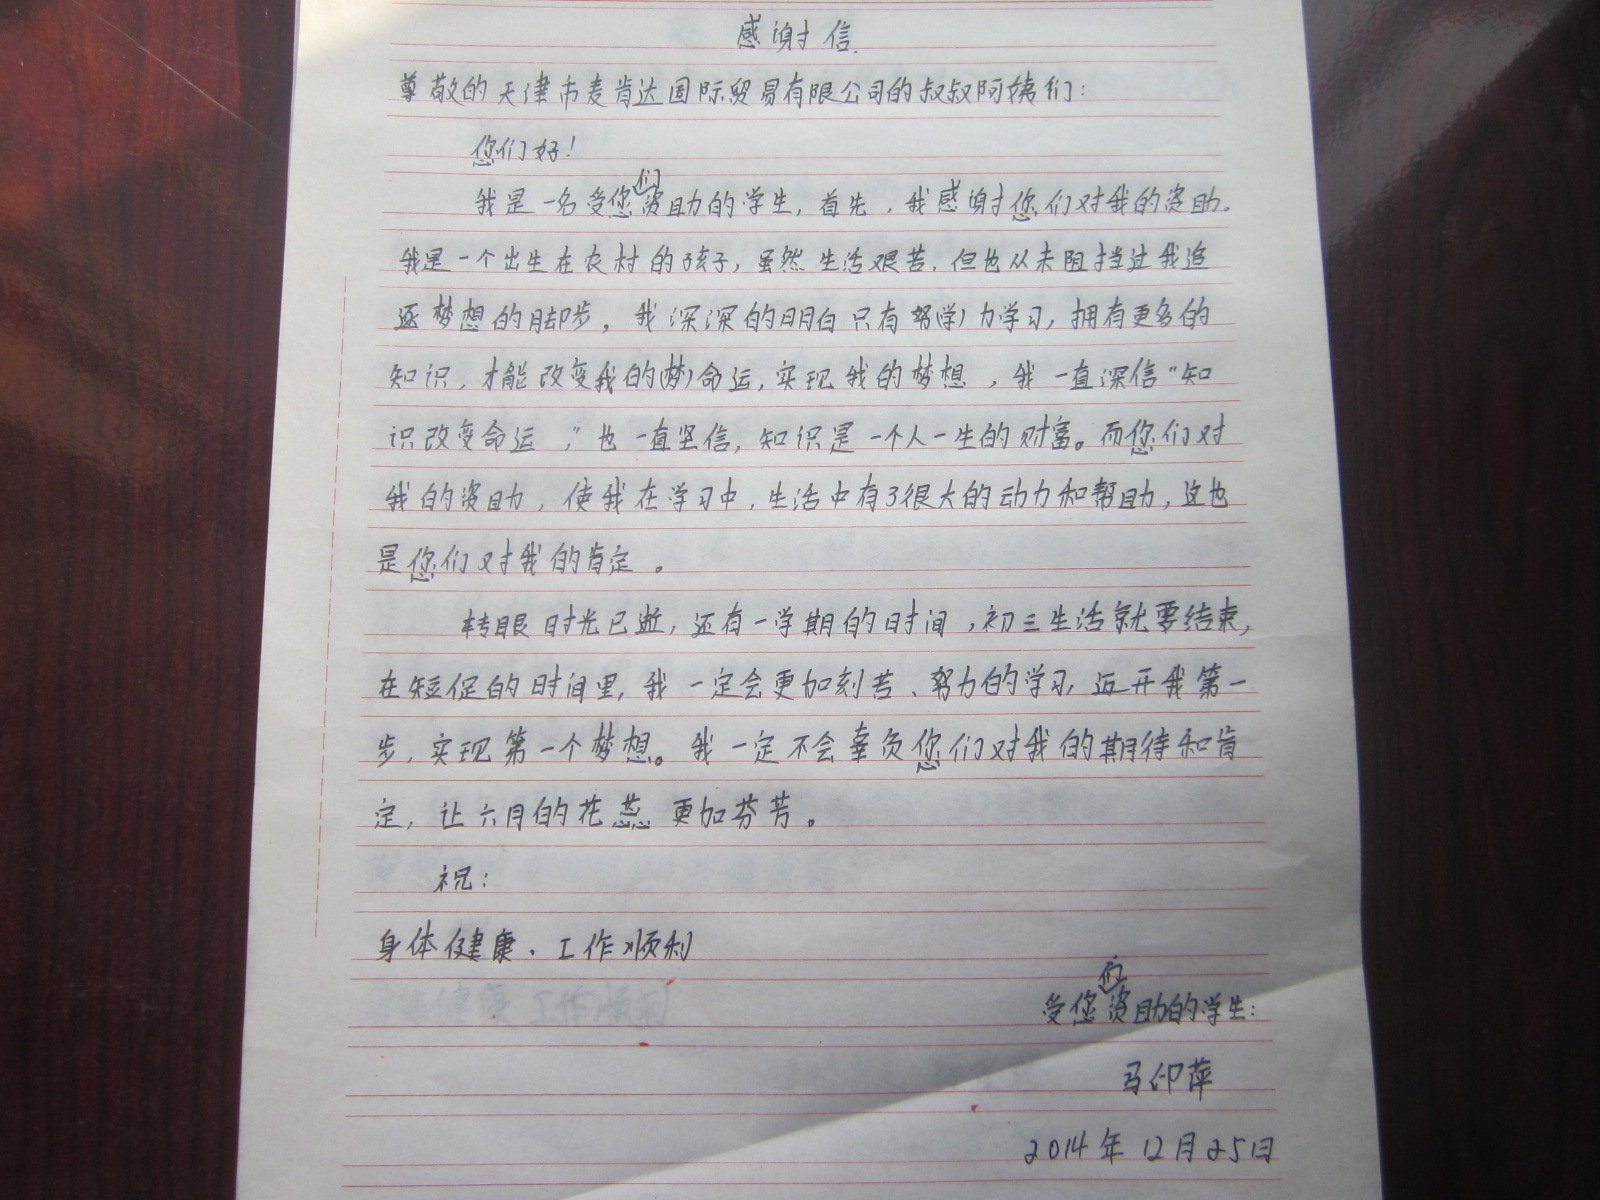 感谢信
尊敬的天津市麦肯达国际贸易有限公司的叔叔阿姨们：
您们好！
我是一名受您们资助的学生，首先，我感谢您们对我的资助。
我是一个出生在农村的孩子，虽然生活艰苦，但也从未阻挡过我追
逐梦想的脚步，我深深的明白只有努(学)力学习，拥有更多的
知识，才能改变我的(梦)命运，实现我的梦想，我一直深信"知
识改变命运，"也一直坚信，知识是一个人一生的财富。而您们对
我的资助，使我在学习中，生活中有了很大的动力和帮助，这也
是您们对我的肯定。
转眼时光已逝，还有一学期的时间，初三生活就要结束，
在短促的时间里，我一定会更加刻苦、努力的学习，迈开我第一
步，实现第一个梦想。我一定不会辜负您们对我的期待和肯
定，让六月的花蕊更加芬芳。
祝：
身体健康、工作顺利
受您们资助的学生：
马印萍
2014年12月25日